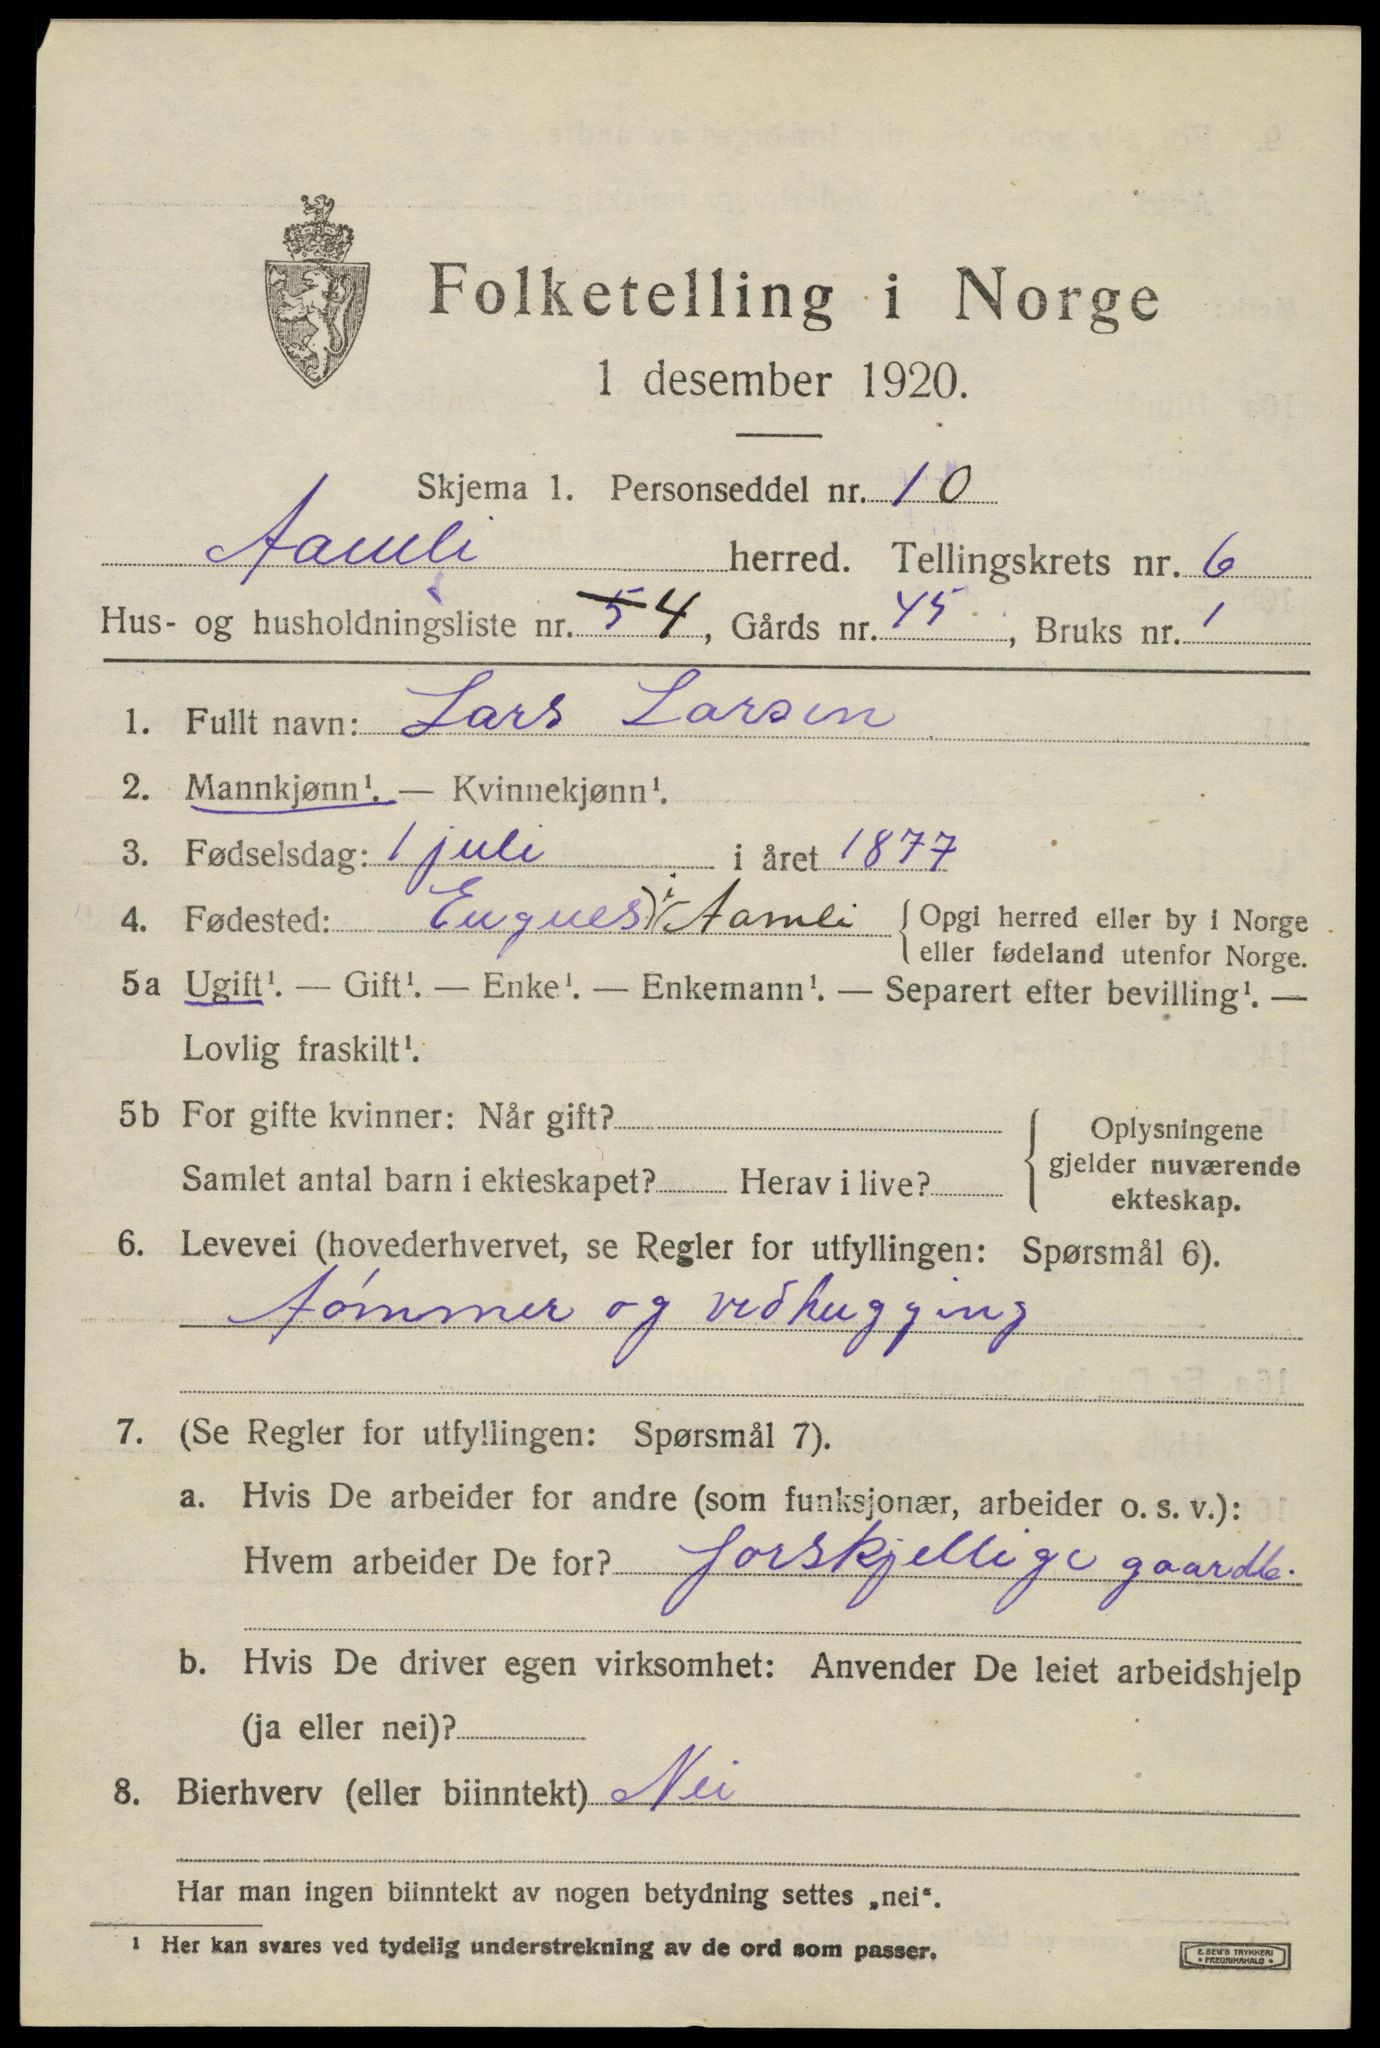 Folketelling i Norge
1 desember 1920.
Skjema 1. Personseddel nr. 10
Aamli herred. Tellingskrets nr. 6
Hus- og husholdningsliste nr. 5 4, Gårds nr. 45, Bruks nr. 1
1. Fullt navn: Lars Larsen
2. Mannkjønn¹. — Kvinnekjønn¹.
3. Fødselsdag: 1 juli i året 1877
4. Fødested: Eugnes) i Aamli { Opgi herred eller by i Norge
eller fødeland utenfor Norge.
5a Ugift¹. — Gift¹. — Enke¹. — Enkemann¹. — Separert efter bevilling¹. —
Lovlig fraskilt¹.
5b For gifte kvinner: Når gift?
Samlet antal barn i ekteskapet? Herav i live?
{ Oplysningene
gjelder nuværende
ekteskap.
6. Levevei (hovederhvervet, se Regler for utfyllingen: Spørsmål 6).
Tømmer og vedhugging
7. (Se Regler for utfyllingen: Spørsmål 7).
a. Hvis De arbeider for andre (som funksjonær, arbeider o. s. v.):
Hvem arbeider De for? forskjellige gaardb.
b. Hvis De driver egen virksomhet: Anvender De leiet arbeidshjelp
(ja eller nei)?
8. Bierhverv (eller biinntekt) Nei
Har man ingen biinntekt av nogen betydning settes „nei“.
¹ Her kan svares ved tydelig understrekning av de ord som passer.
E. SEM'S TRYKKERI
• FREDRIKSHALD •